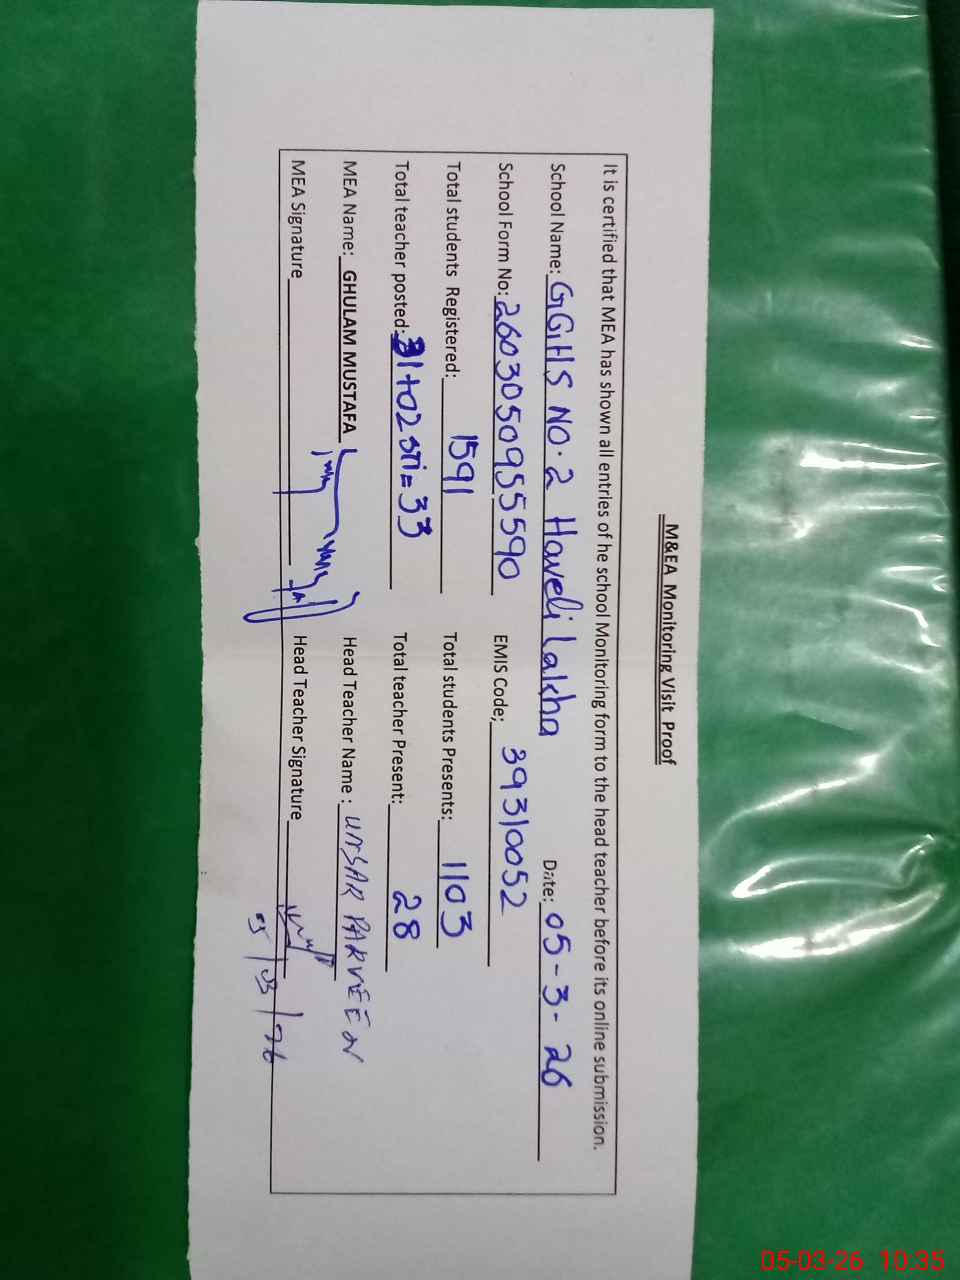 M&EA Monitoring Visit Proof
It is certified that MEA has shown all entries of he school Monitoring form to the head teacher before its online submission.
School Name: GGHS NO. 2 Haveli Lakha Date: 05-3-26
School Form No: 2603050955590 EMIS Code; 39310052
Total students Registered: 1591 Total students Presents: 1103
Total teacher posted: 31+02 = 33 Total teacher Present: 28
MEA Name: GHULAM MUSTAFA Head Teacher Name : UNSAR PARVEEN
MEA Signature Head Teacher Signature
05/03/26
05-03-26 10:35